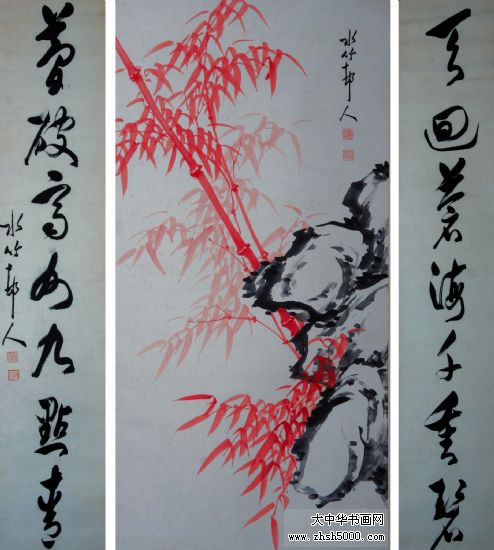 天迴蒼海千重碧
水竹邨人
夢破齊州九點青
水竹邨人
大中华书画网
www.zhsh5000.com